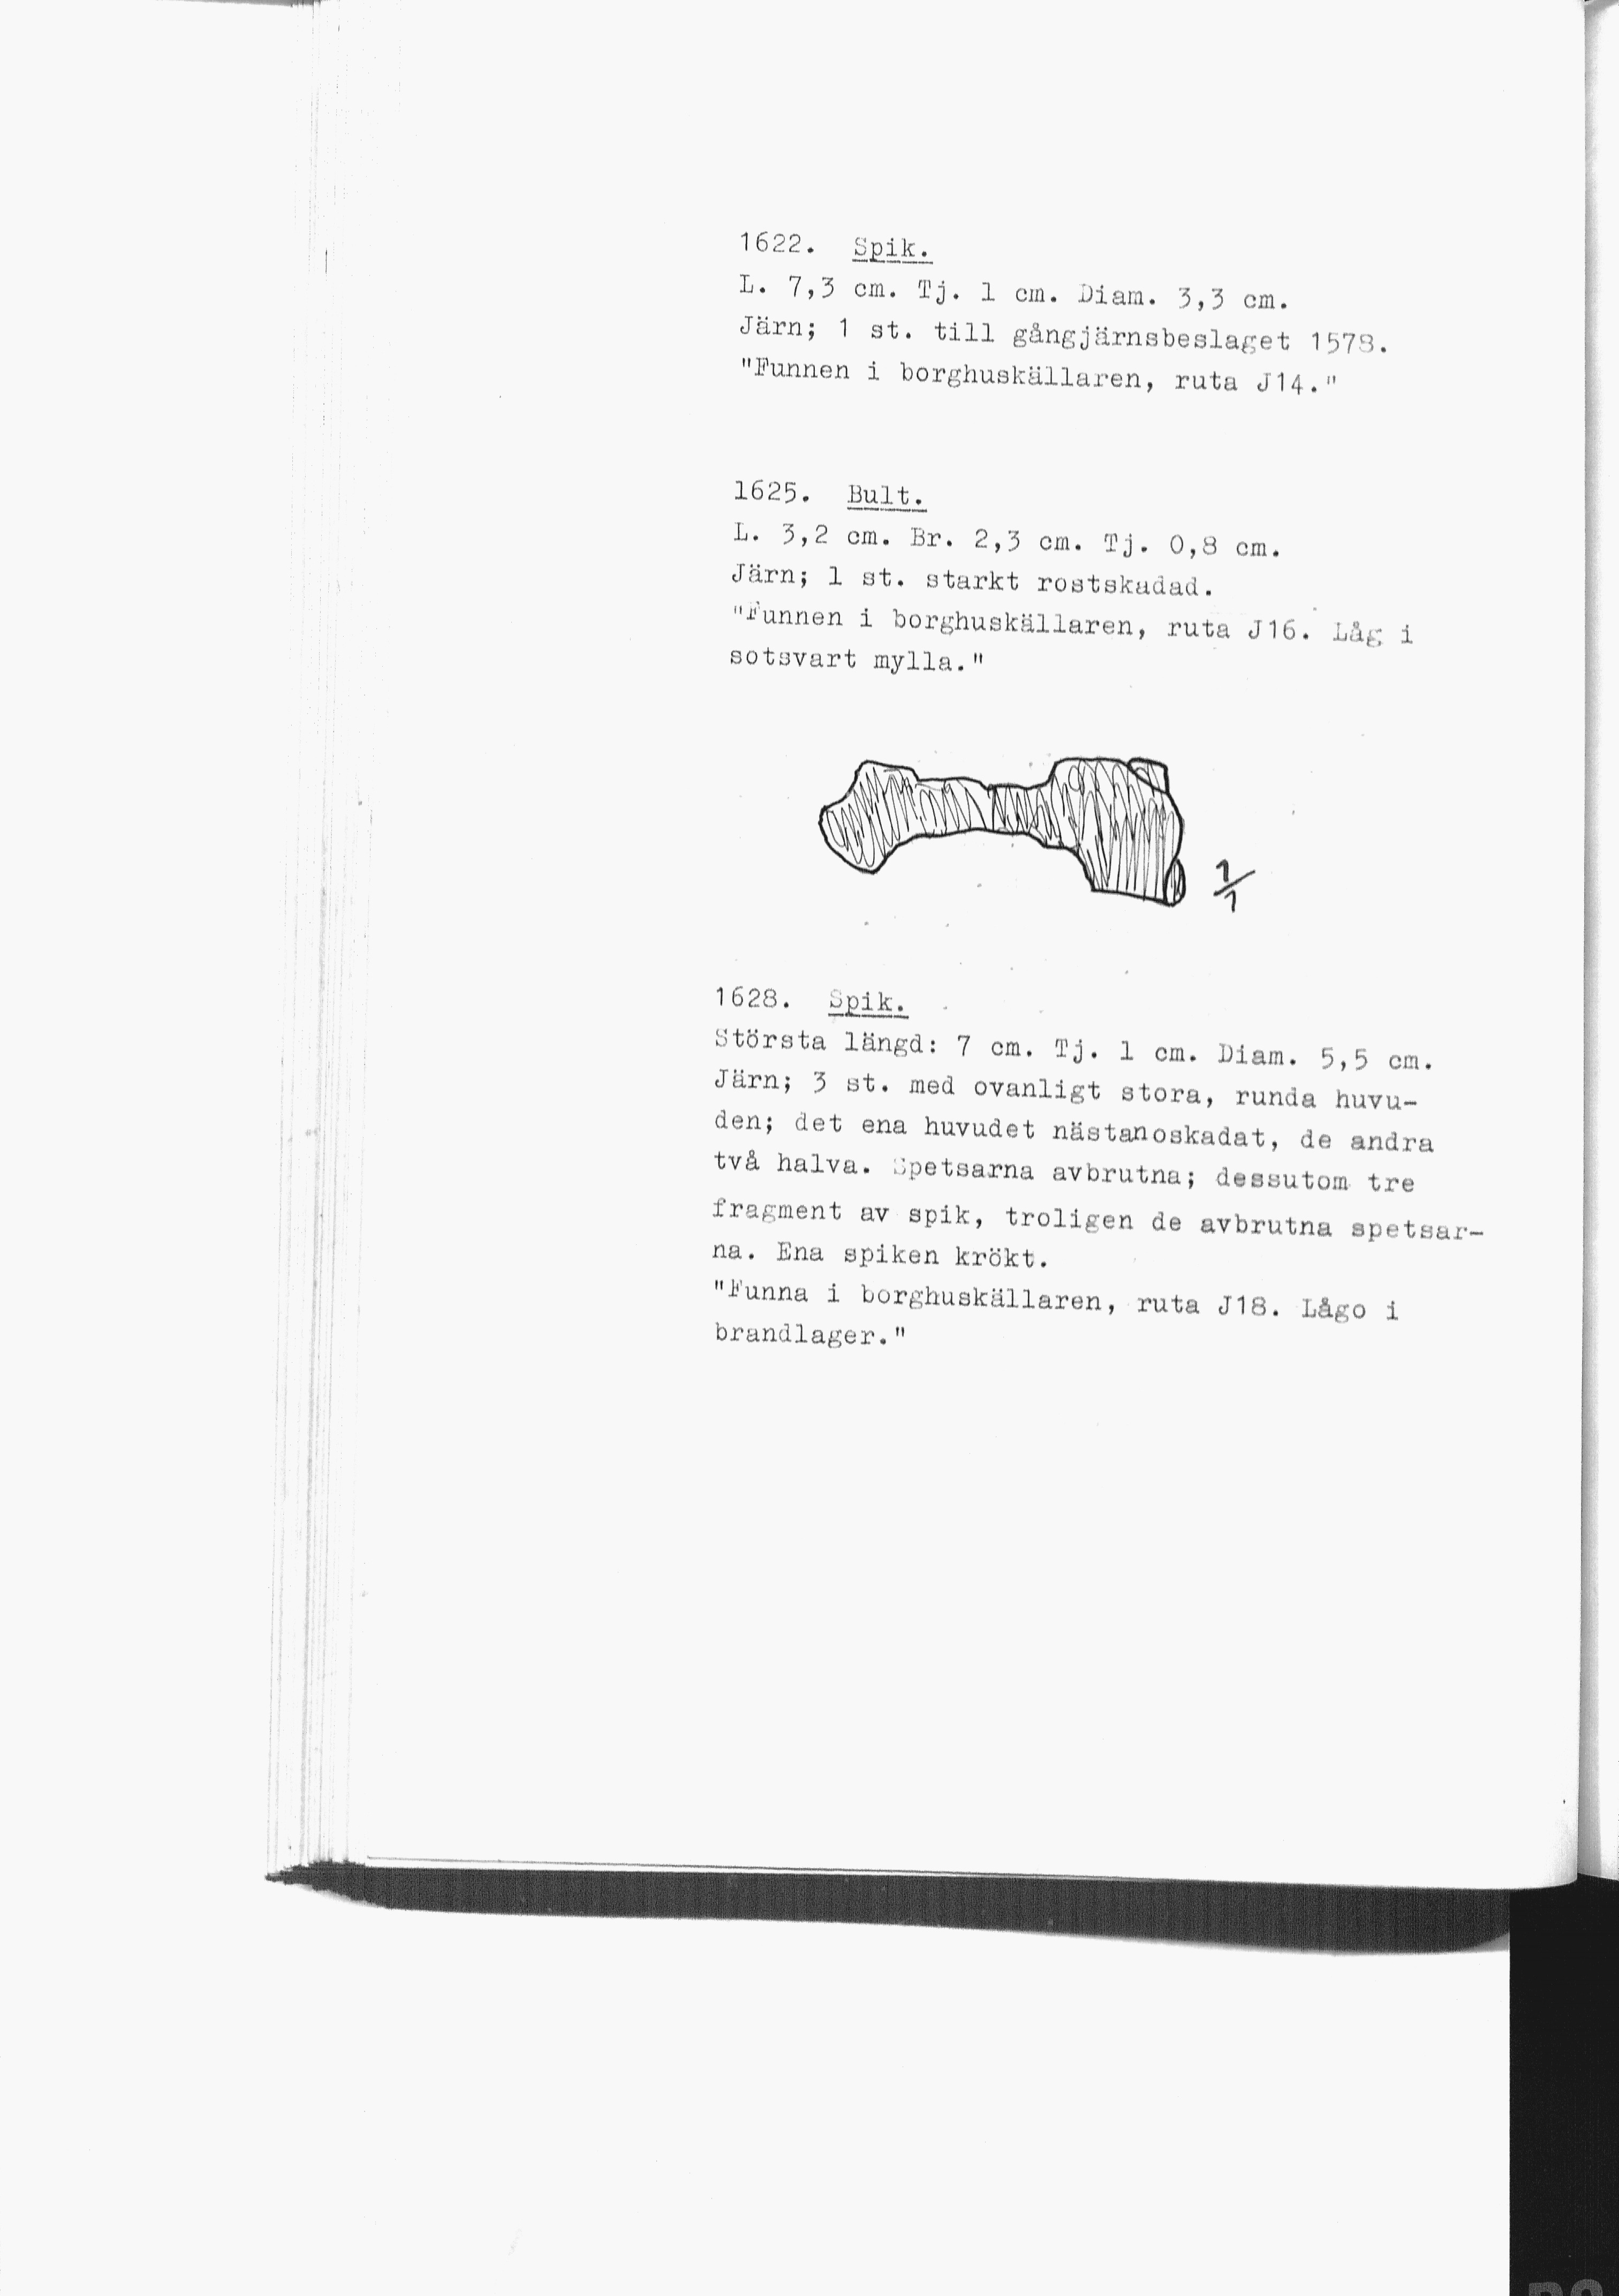 1622. Spik.
L. 7,3 cm. Tj. 1 cm. Diam. 3,3 cm.
Järn; 1 st. till gångjärnsbeslaget 1578.
"Funnen i borghuskällaren, ruta J14."
1625. Bult.
L. 3,2 cm. Br. 2,3 cm. Tj. 0,8 cm.
Järn; 1 st. starkt rostskadad.
"Funnen i borghuskällaren, ruta J16. Låg i
sotsvart mylla."
1/1
1628. Spik.
Största längd: 7 cm. Tj. 1 cm. Diam. 5,5 cm.
Järn; 3 st. med ovanligt stora, runda huvu-
den; det ena huvudet nästanoskadat, de andra
två halva. Spetsarna avbrutna; dessutom tre
fragment av spik, troligen de avbrutna spetsar-
na. Ena spiken krökt.
"Funna i borghuskällaren, ruta J18. Lågo i
brandlager."